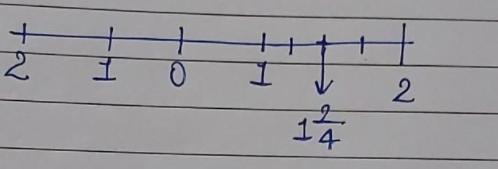 2 1 0 1 2
1 2/4